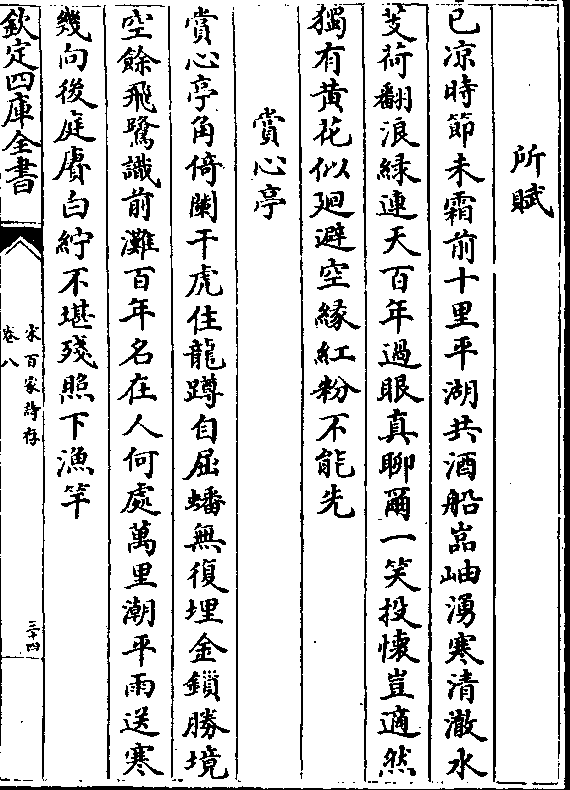 所賦
已凉時節未霜前十里平湖共酒船嵓岫湧寒清澈水
芰荷翻浪緑連天百年過眼真聊爾一笑投懷豈適然
獨有黄花似廻避空緣紅粉不能先
賞心亭
賞心亭角倚闌干虎住龍蹲自屈蟠無復埋金鎖勝境
空餘飛鷺識前灘百年名在人何處萬里潮平雨送寒
幾向後庭賡白紵不堪殘照下漁竿
欽定四庫全書
宋百家詩存
卷八
三十四